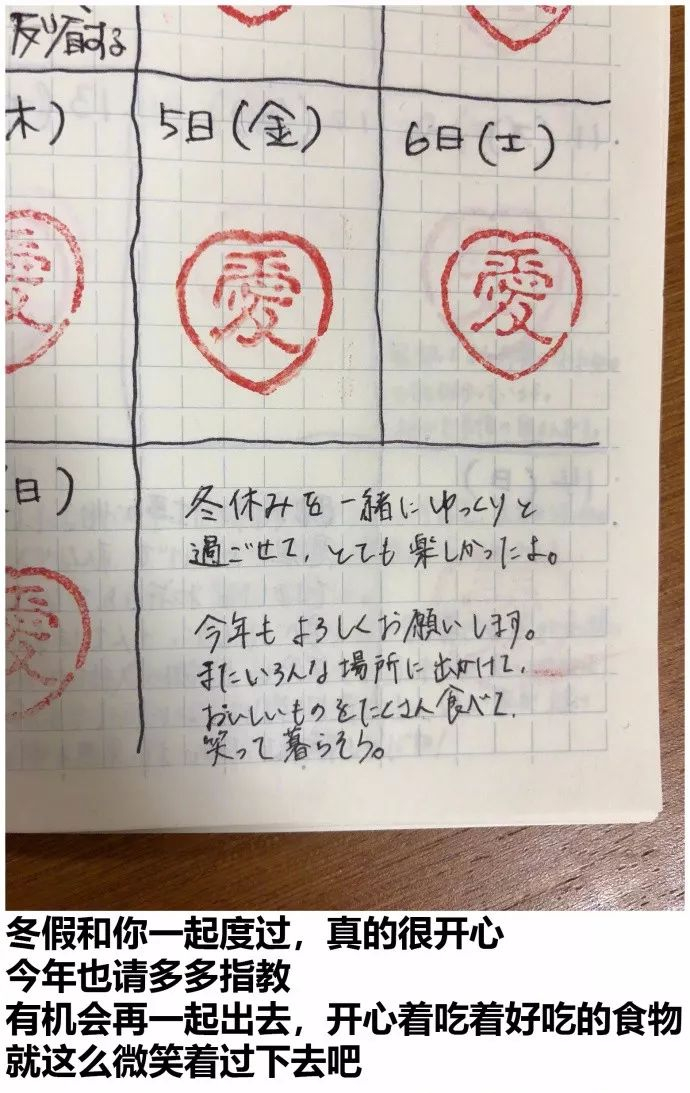 反省する
木)
5日(金)
6日(土)
愛
愛
愛
日)
愛
冬休みを一緒にゆっくりと
過ごせて、とても楽しかったよ。
今年もよろしくお願いします。
またいろんな場所に出かけて、
おいしいものをたくさん食べて、
笑って暮らそう。
冬假和你一起度过，真的很开心
今年也请多多指教
有机会再一起出去，开心着吃着好吃的食物
就这么微笑着过下去吧